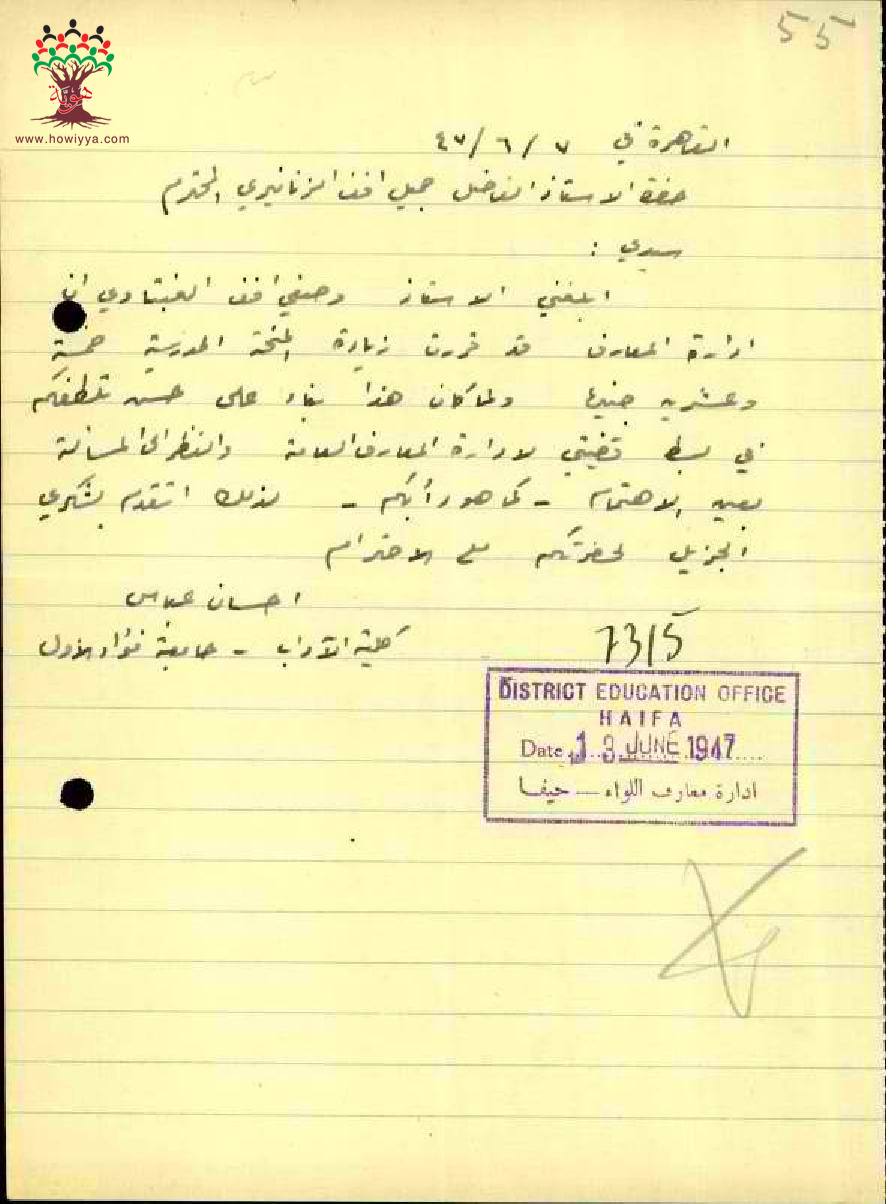 55
هوية
www.howiyya.com
القاهرة في ٧ / ٦ / ٤٧
حضرة الاستاذ الفاضل جميل افندي الزنانيري المحترم
سيدي :
ابلغني الاستاذ وصفي افندي العنبتاوي ان
ادارة المعارف قد قررت زيادة المنحة المدرسية خمسة
وعشرين جنيها ولما كان هذا بناء على حسن تلطفكم
في بسط قضيتي لادارة المعارف العامة والنظر الى المسألة
بعين الاهتمام - كما هو دأبكم - لذلك اتقدم بشكري
الجزيل لحضرتكم مع الاحترام
احسان عباس
كلية الآداب - جامعة فؤاد الاول
7315
DISTRICT EDUCATION OFFICE
HAIFA
Date 13 JUNE 1947
ادارة معارف اللواء — حيفا